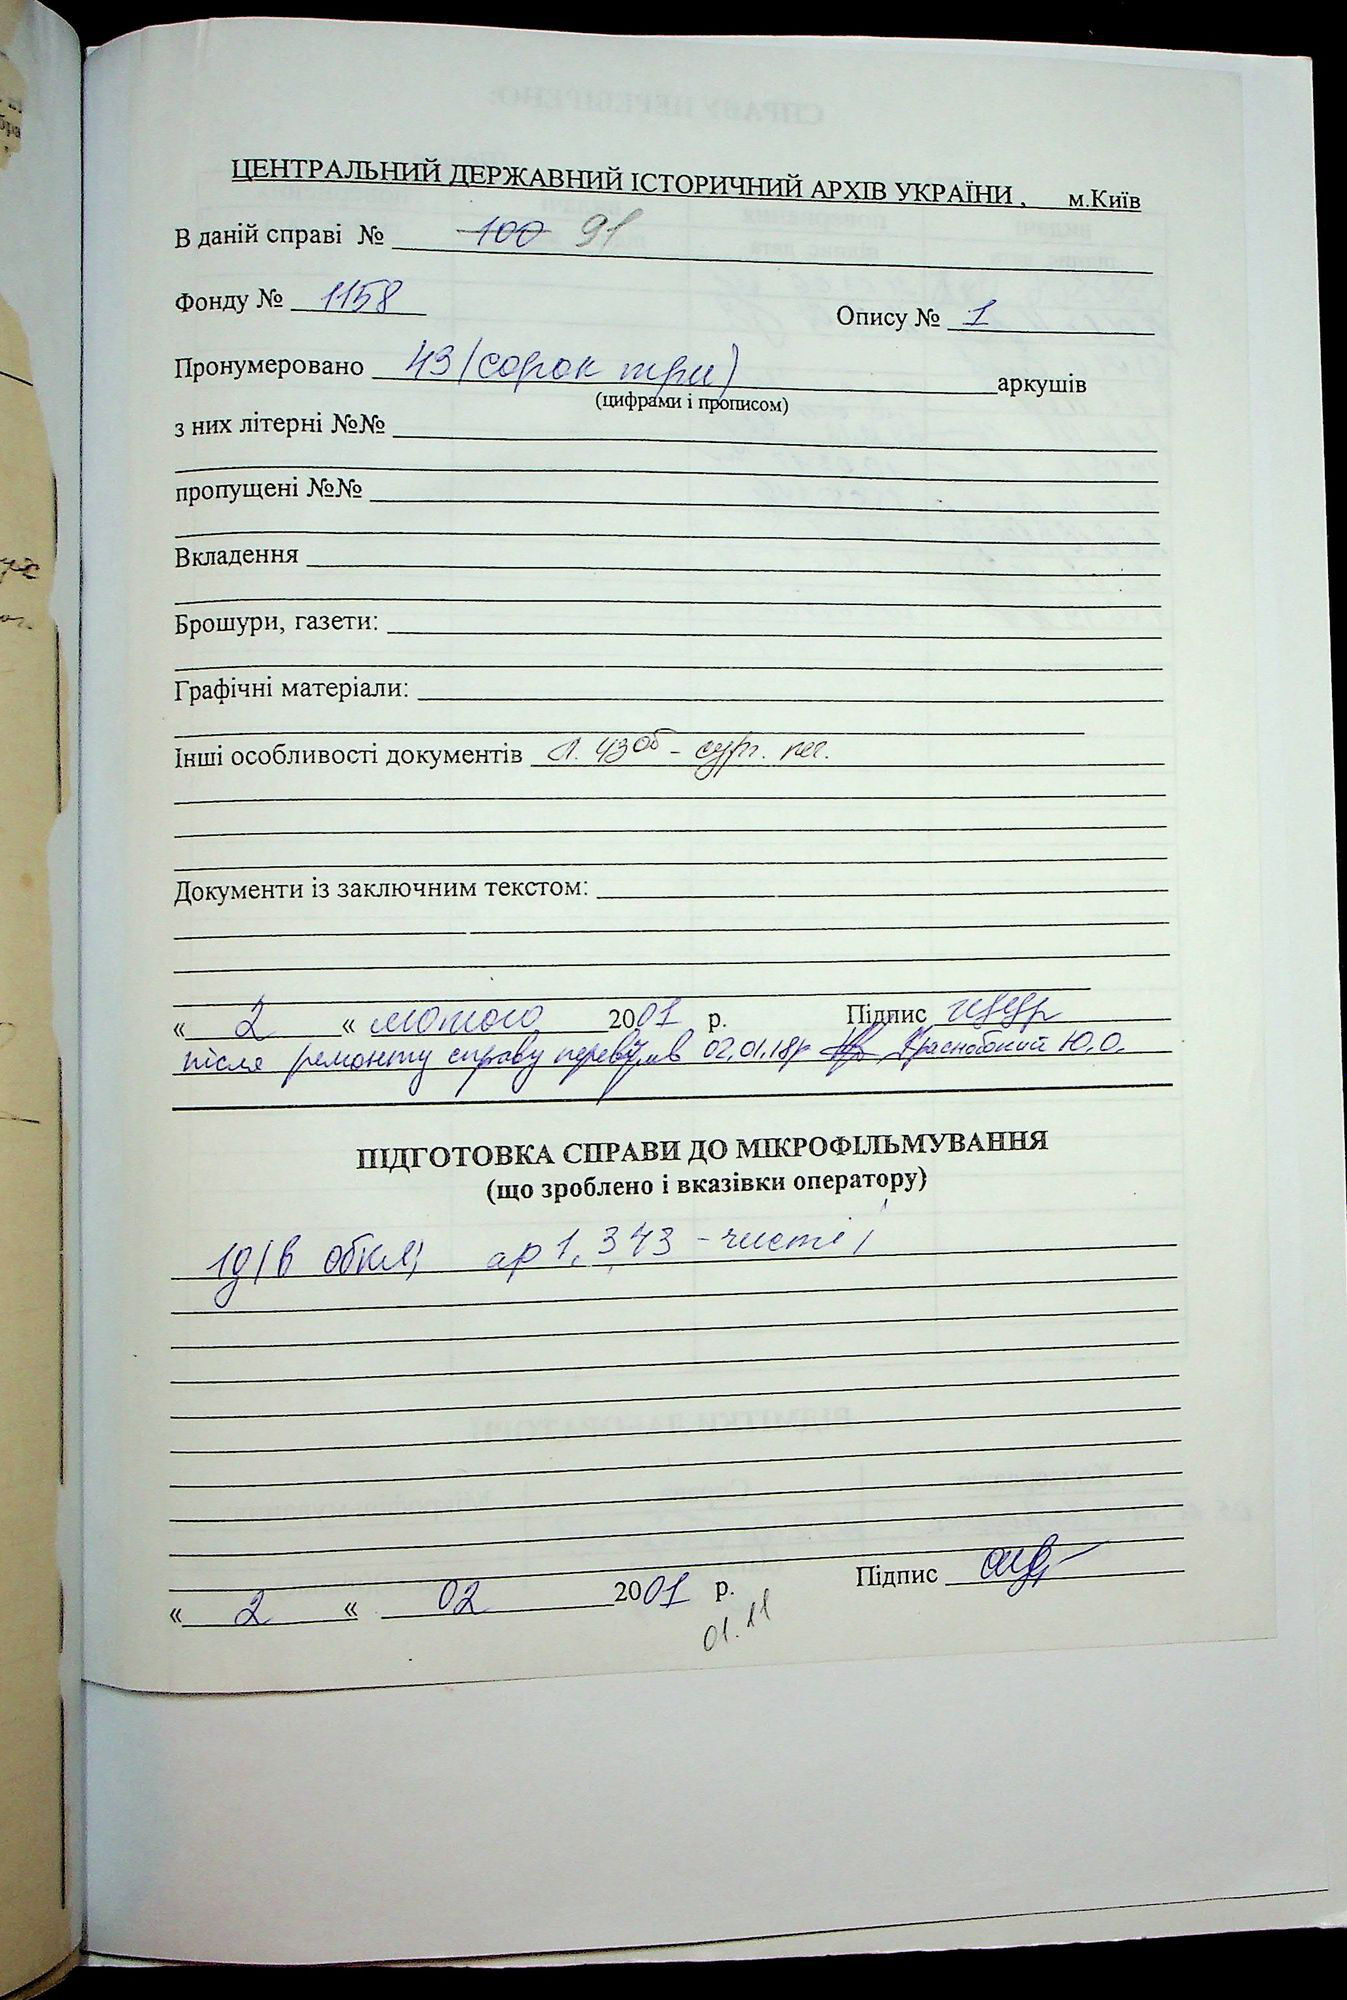 ЦЕНТРАЛЬНИЙ ДЕРЖАВНИЙ ІСТОРИЧНИЙ АРХІВ УКРАЇНИ, м.Київ
В даній справі № 100 91
Фонду № 1158 Опису № 1
Пронумеровано 43 (сорок три) аркушів
(цифрами і прописом)
з них літерні №№
пропущені №№
Вкладення
Брошури, газети:
Графічні матеріали:
Інші особливості документів А. 43об - сург. печ.
Документи із заключним текстом:
« 2 « лютого 2001 р. Підпис
після ремонту справу перевірив 02.01.18р Краснобокий Ю.О.
ПІДГОТОВКА СПРАВИ ДО МІКРОФІЛЬМУВАННЯ
(що зроблено і вказівки оператору)
в обкл; ар 1, 3, 43 - чисті
« 2 « 02 2001 р. Підпис
01.11